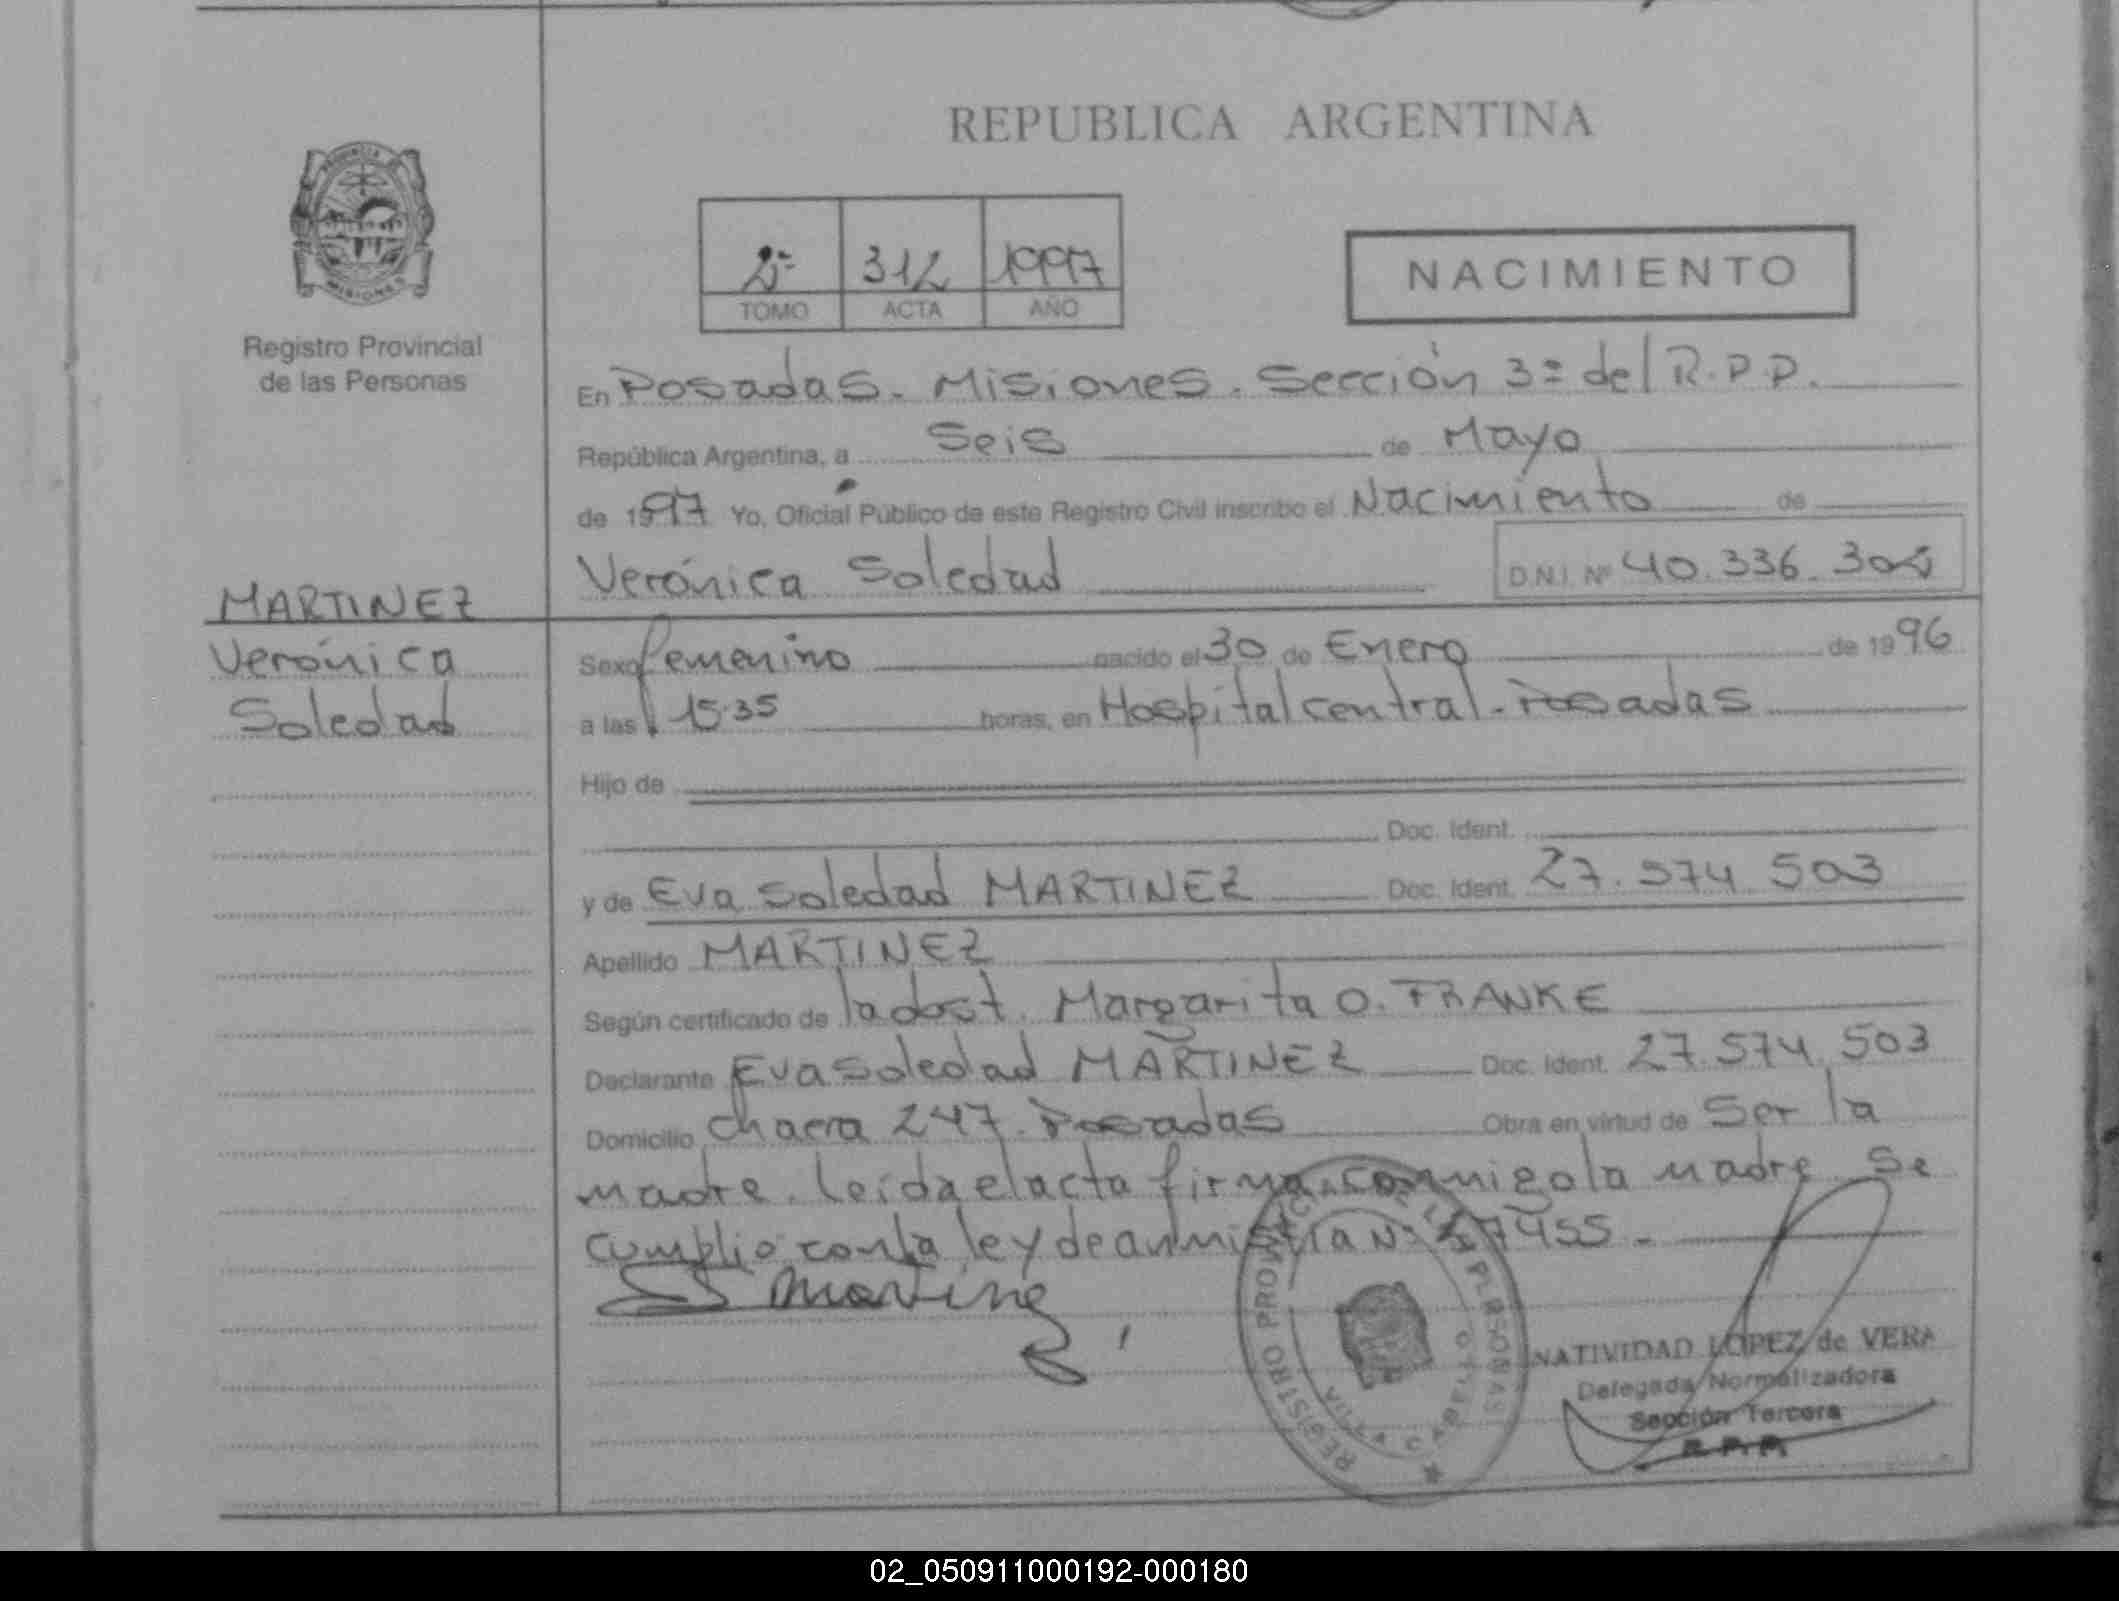 REPUBLICA ARGENTINA
PROVINCIA DE
MISIONES
Registro Provincial
de las Personas
2º 312 1997
TOMO ACTA AÑO
NACIMIENTO
En Posadas. Misiones. Sección 3º del R.P.P.
República Argentina, a Seis de Mayo
de 1997 Yo, Oficial Público de este Registro Civil inscribo el Nacimiento de
Verónica Soledad D.N.I. Nº 40.336.304
MARTINEZ
Verónica
Soledad
Sexo femenino nacido el 30 de Enero de 1996
a las 15.35 horas, en Hospital central. Posadas
Hijo de
Doc. Ident.
y de Eva Soledad MARTINEZ Doc. Ident. 27.574.503
Apellido MARTINEZ
Según certificado de la obst. Margarita O. FRANKE
Declarante Eva Soledad MARTINEZ Doc. Ident. 27.574.503
Domicilio chacra 247. Posadas Obra en virtud de Ser la
madre. leida el acta firma conmigo la madre. Se
cumplio con la ley de amnistia Nº
REGISTRO PROVINCIAL DE LAS PERSONAS
NATIVIDAD LOPEZ de VERA
Delegada Normalizadora
Sección Tercera
R.P.P.
02_050911000192-000180